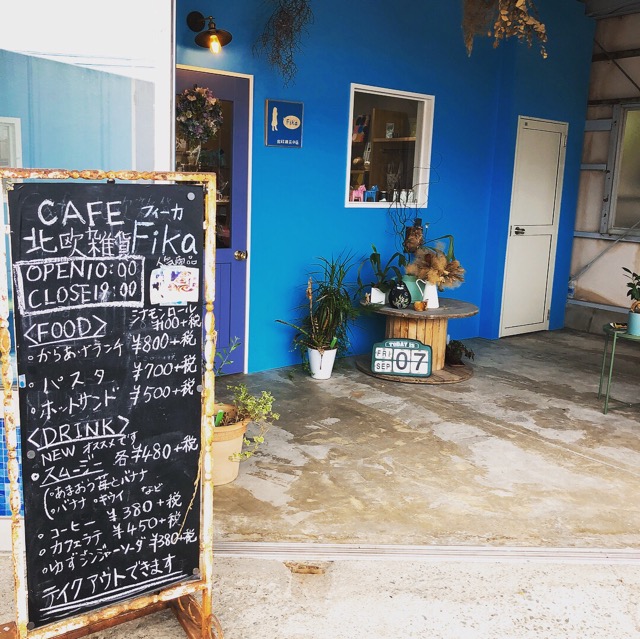 CAFE フィーカ
北欧雑貨 Fika
OPEN 10:00
CLOSE 19:00
人気商品
シナモンロール
¥100+税
<FOOD>
・からあげランチ ¥800+税
・パスタ ¥700+税
・ホットサンド ¥500+税
<DRINK>
NEW オススメです
・スムージー 各¥480+税
(・あまおう苺とバナナ
・バナナ ・キウイ など
・コーヒー ¥380+税
・カフェラテ ¥450+税
・ゆずジンジャーソーダ ¥380+税
テイクアウトできます
Fika
TODAY IS
FRI
SEP
07